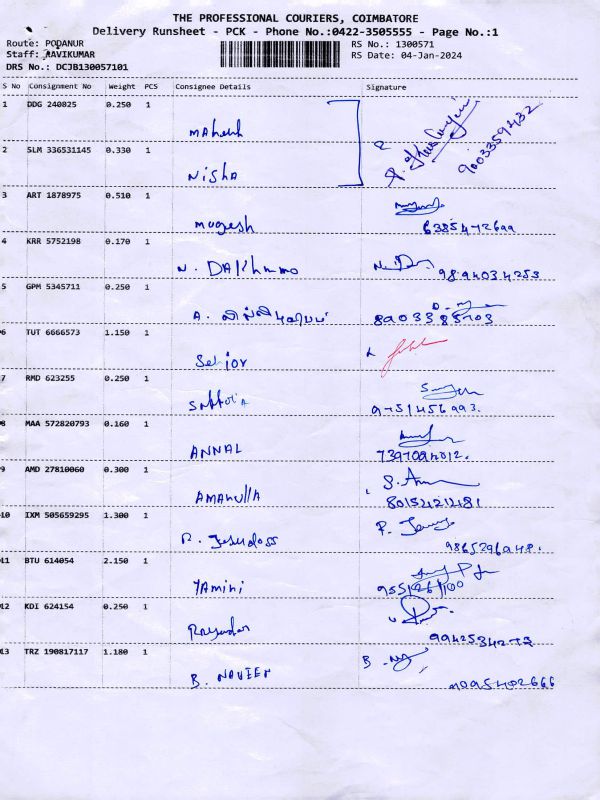 THE PROFESSIONAL COURIERS, COIMBATORE
Delivery Runsheet - PCK - Phone No.:0422-3505555 - Page No.:1
Route: PODANUR RS No.: 1300571
Staff: RAVIKUMAR RS Date: 04-Jan-2024
DRS No.: DCJB130057101
S No Consignment No Weight PCS Consignee Details Signature
1 DDG 240825 0.250 1
Mahesh
9003359432
2 SLM 336531145 0.330 1
Nisha
3 ART 1878975 0.510 1
Mugesh 6385472699
4 KRR 5752198 0.170 1
N. 9894034253
5 GPM 5345711 0.250 1
A. 8903385703
6 TUT 6666573 1.150 1
7 RMD 623255 0.250 1
9751456993.
8 MAA 572820793 0.160 1
ANNAL 7397094012.
9 AMD 27810060 0.300 1
S.
AMANULLA 80154212481
10 IXM 505659295 1.300 1
R. Jesudoss 9865296948.
11 BTU 614054 2.150 1
Yamini 9551261100
12 KDI 624154 0.250 1
13 TRZ 190817117 1.180 1
B. NAVEEN 9095402666